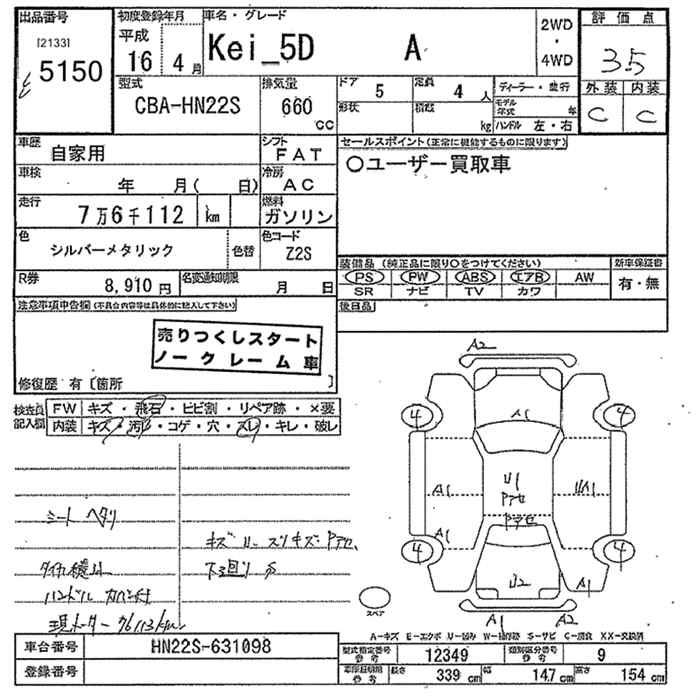 出品番号
[2133]
5150
初度登録年月
平成
16 4月
車名・グレード
Kei_5D A
2WD
・
4WD
評価点
3.5
外装 内装
C C
型式
CBA-HN22S
排気量
660
cc
ドア
5
定員
4人
形状
積載
kg
ディーラー・並行
モデル年式 年
ハンドル 左・右
車歴
自家用
シフト
FAT
車検
年 月( 日)
冷房
AC
走行
7万6千112 km
燃料
ガソリン
色
シルバーメタリック
色替
色コード
Z2S
R券
8,910円
名変通知期限
月 日
セールスポイント(正常に機能するものに限ります)
○ユーザー買取車
装備品(純正品に限り○をつけてください)
PS PW ABS エアB AW
SR ナビ TV カワ
新車保証書
有・無
後日品
注意事項申告欄(不具合内容等は具体的に記入して下さい)
売りつくしスタート
ノークレーム車
修復歴 有〔箇所 〕
検査員
記入欄
FW キズ・飛石・ヒビ割・リペア跡・×要
内装 キズ・汚れ・コゲ・穴・スレ・キレ・破レ
シート ヘタリ
ハンドル カバー付
現メーター 76113km
キズ U スリキズ Pアセ
下廻り サ
A2
4 4
A1
A1
U1
Pアセ
UA1
Pアセ
A1
4 4
U2
A1
A1 A2
スペア
A-キズ E-エクボ U-凹み W-補修跡 S-サビ C-腐食 XX-交換済
車台番号
HN22S-631098
登録番号
型式指定番号
参考
12349
類別区分番号
参考
9
車検証期限
参考
長さ
339 cm
幅
147 cm
高さ
154 cm